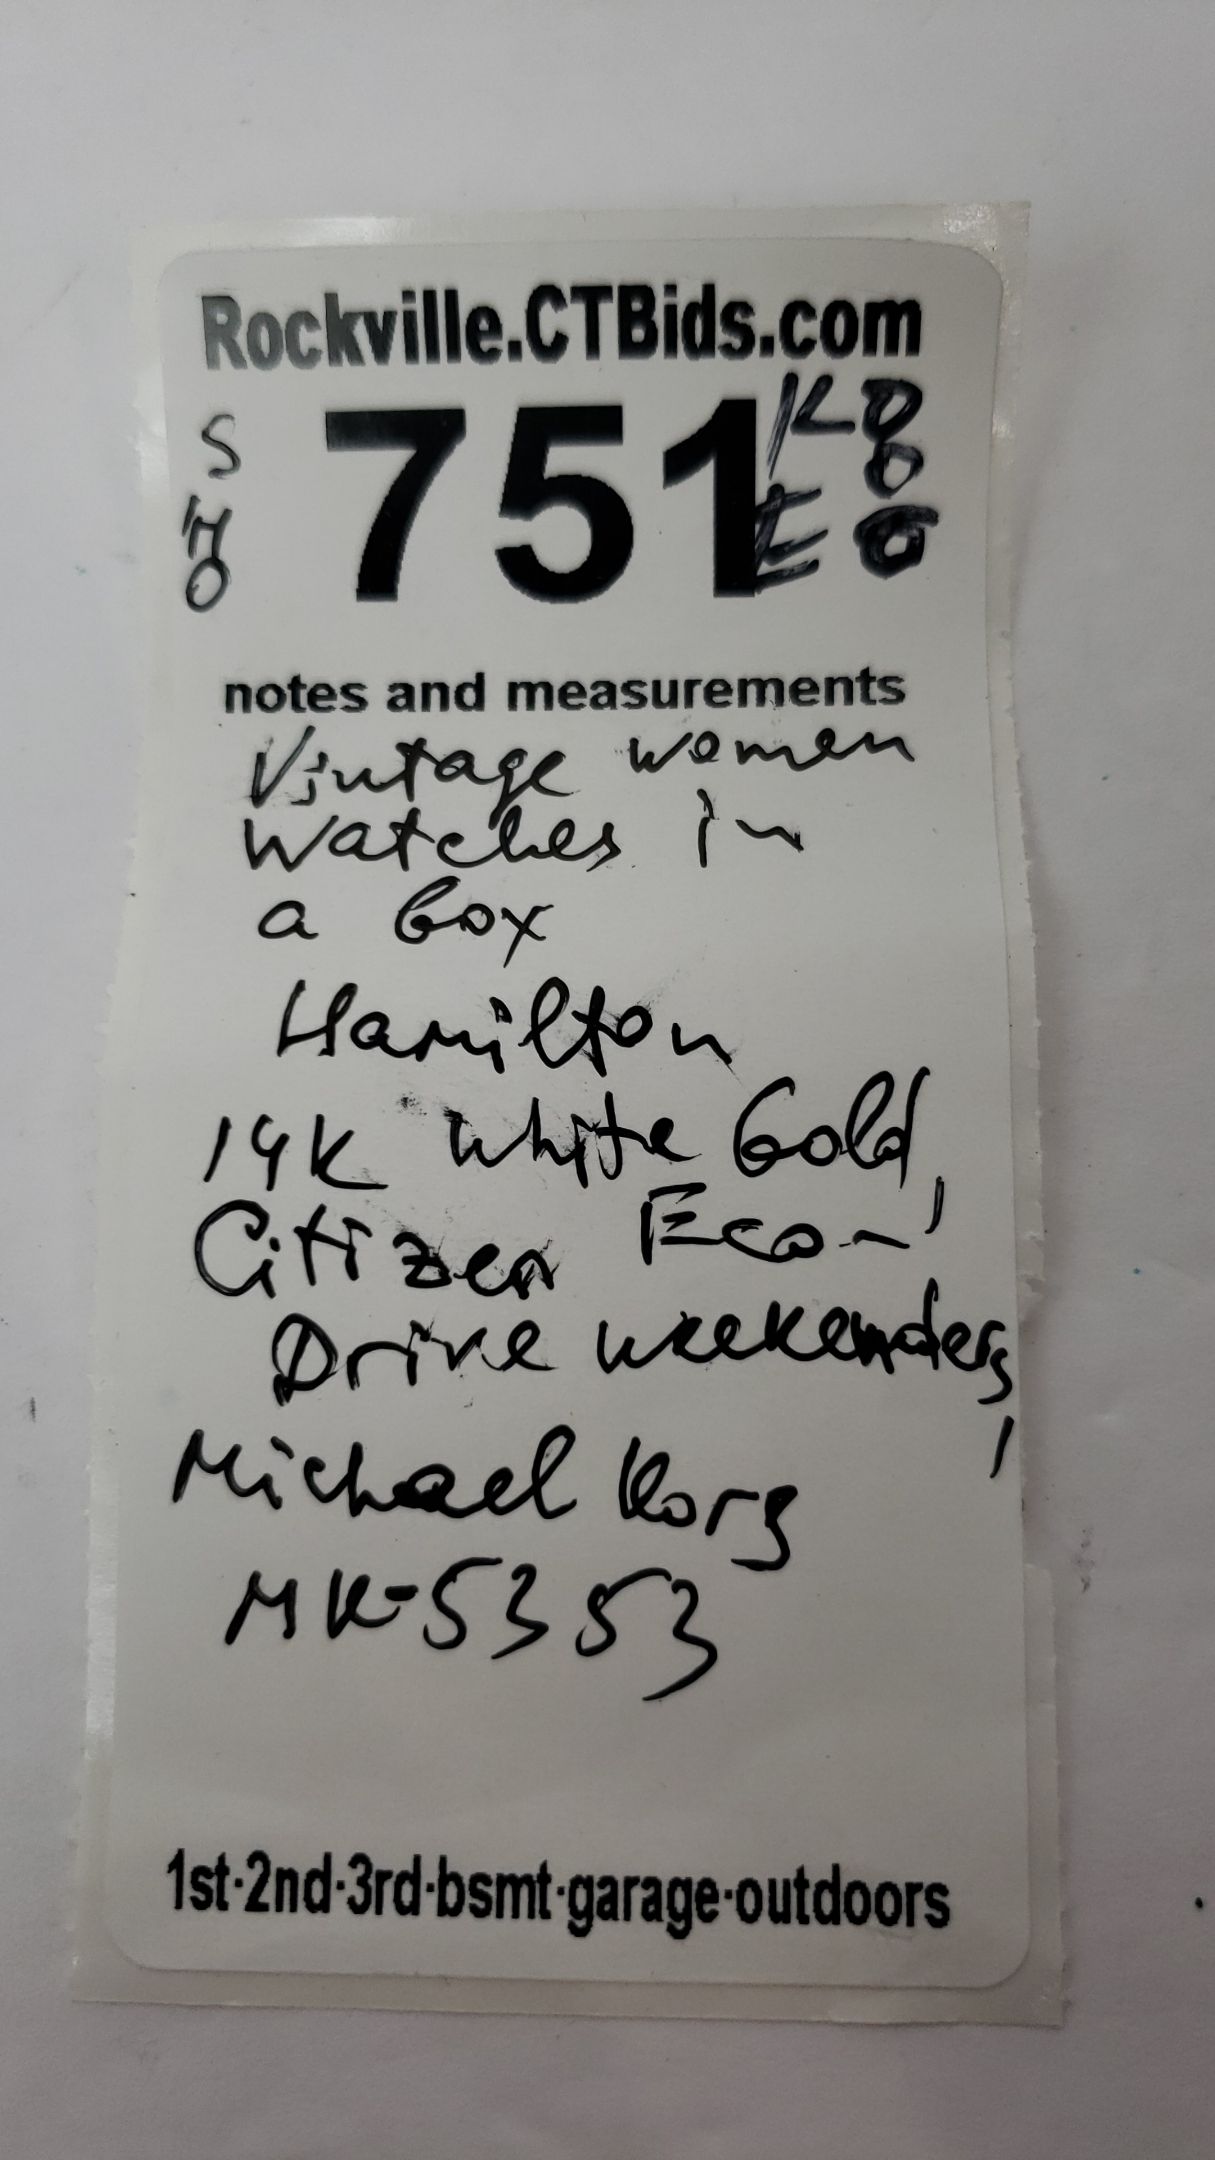 Rockville.CTBids.com
751
notes and measurements
Vintage women
watches in
a box
Hamilton
14K white Gold,
Citizen Eco-
Drive weekenders,
Michael Kors
MK-5353
1st·2nd·3rd·bsmt·garage·outdoors